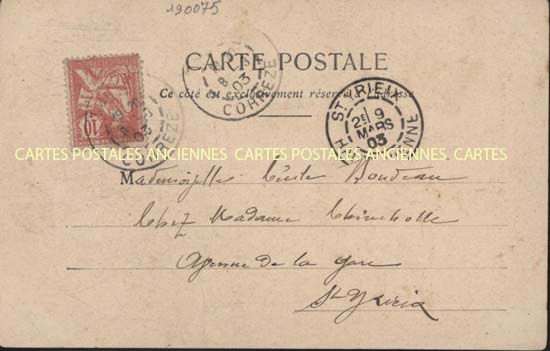 190075
CARTE POSTALE
Ce côté est exclusivement réservé à l'adresse
CORRÈZE
03
ST YRIEIX
2E 9
MARS
03
CARTES POSTALES ANCIENNES CARTES POSTALES ANCIENNES CARTES POSTALES
CORRÈZE
10
Mademoiselle Cécile Boudeau
Chez Madame Chincholle
Avenue de la Gare
St Yrieix